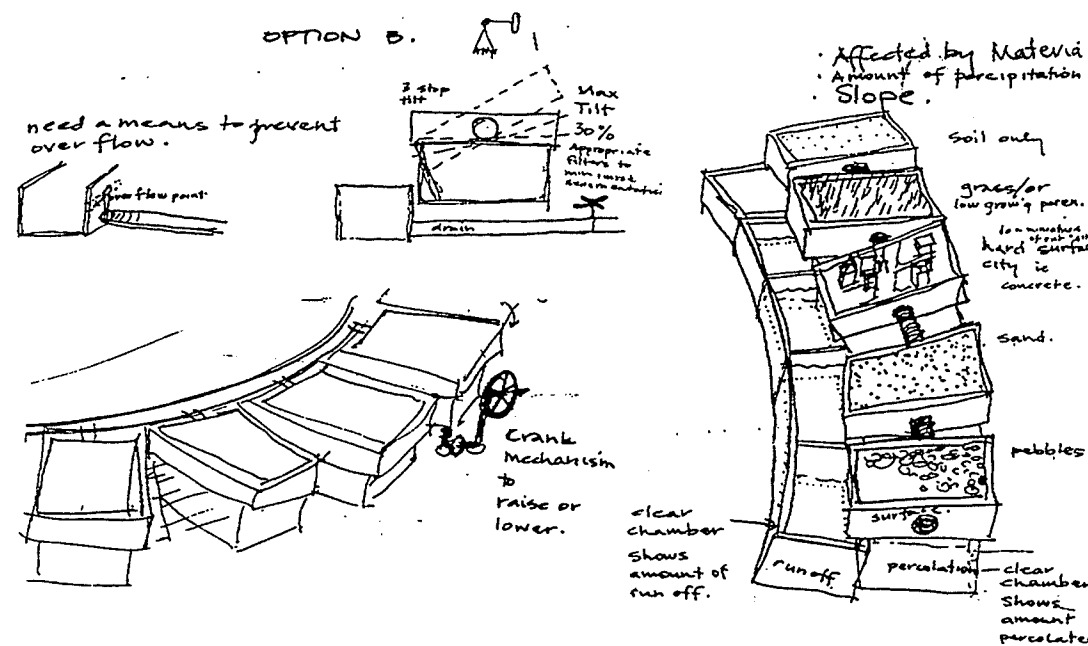 OPTION B.
need a means to prevent
over flow.
over flow point
3 stop
tilt
Max
Tilt
30%
Appropriate
filters to
drain
Crank
Mechanism
to
raise or
lower.
· Affected by Materia
· Amount of percipitation
· Slope.
soil only
grass/or
low grow'g peren.
hard surfa
city ie
concrete.
sand.
pebbles
surface.
clear
chamber
shows
amount of
run off.
run off
percolation
clear
chamber
shows
amount
percolate